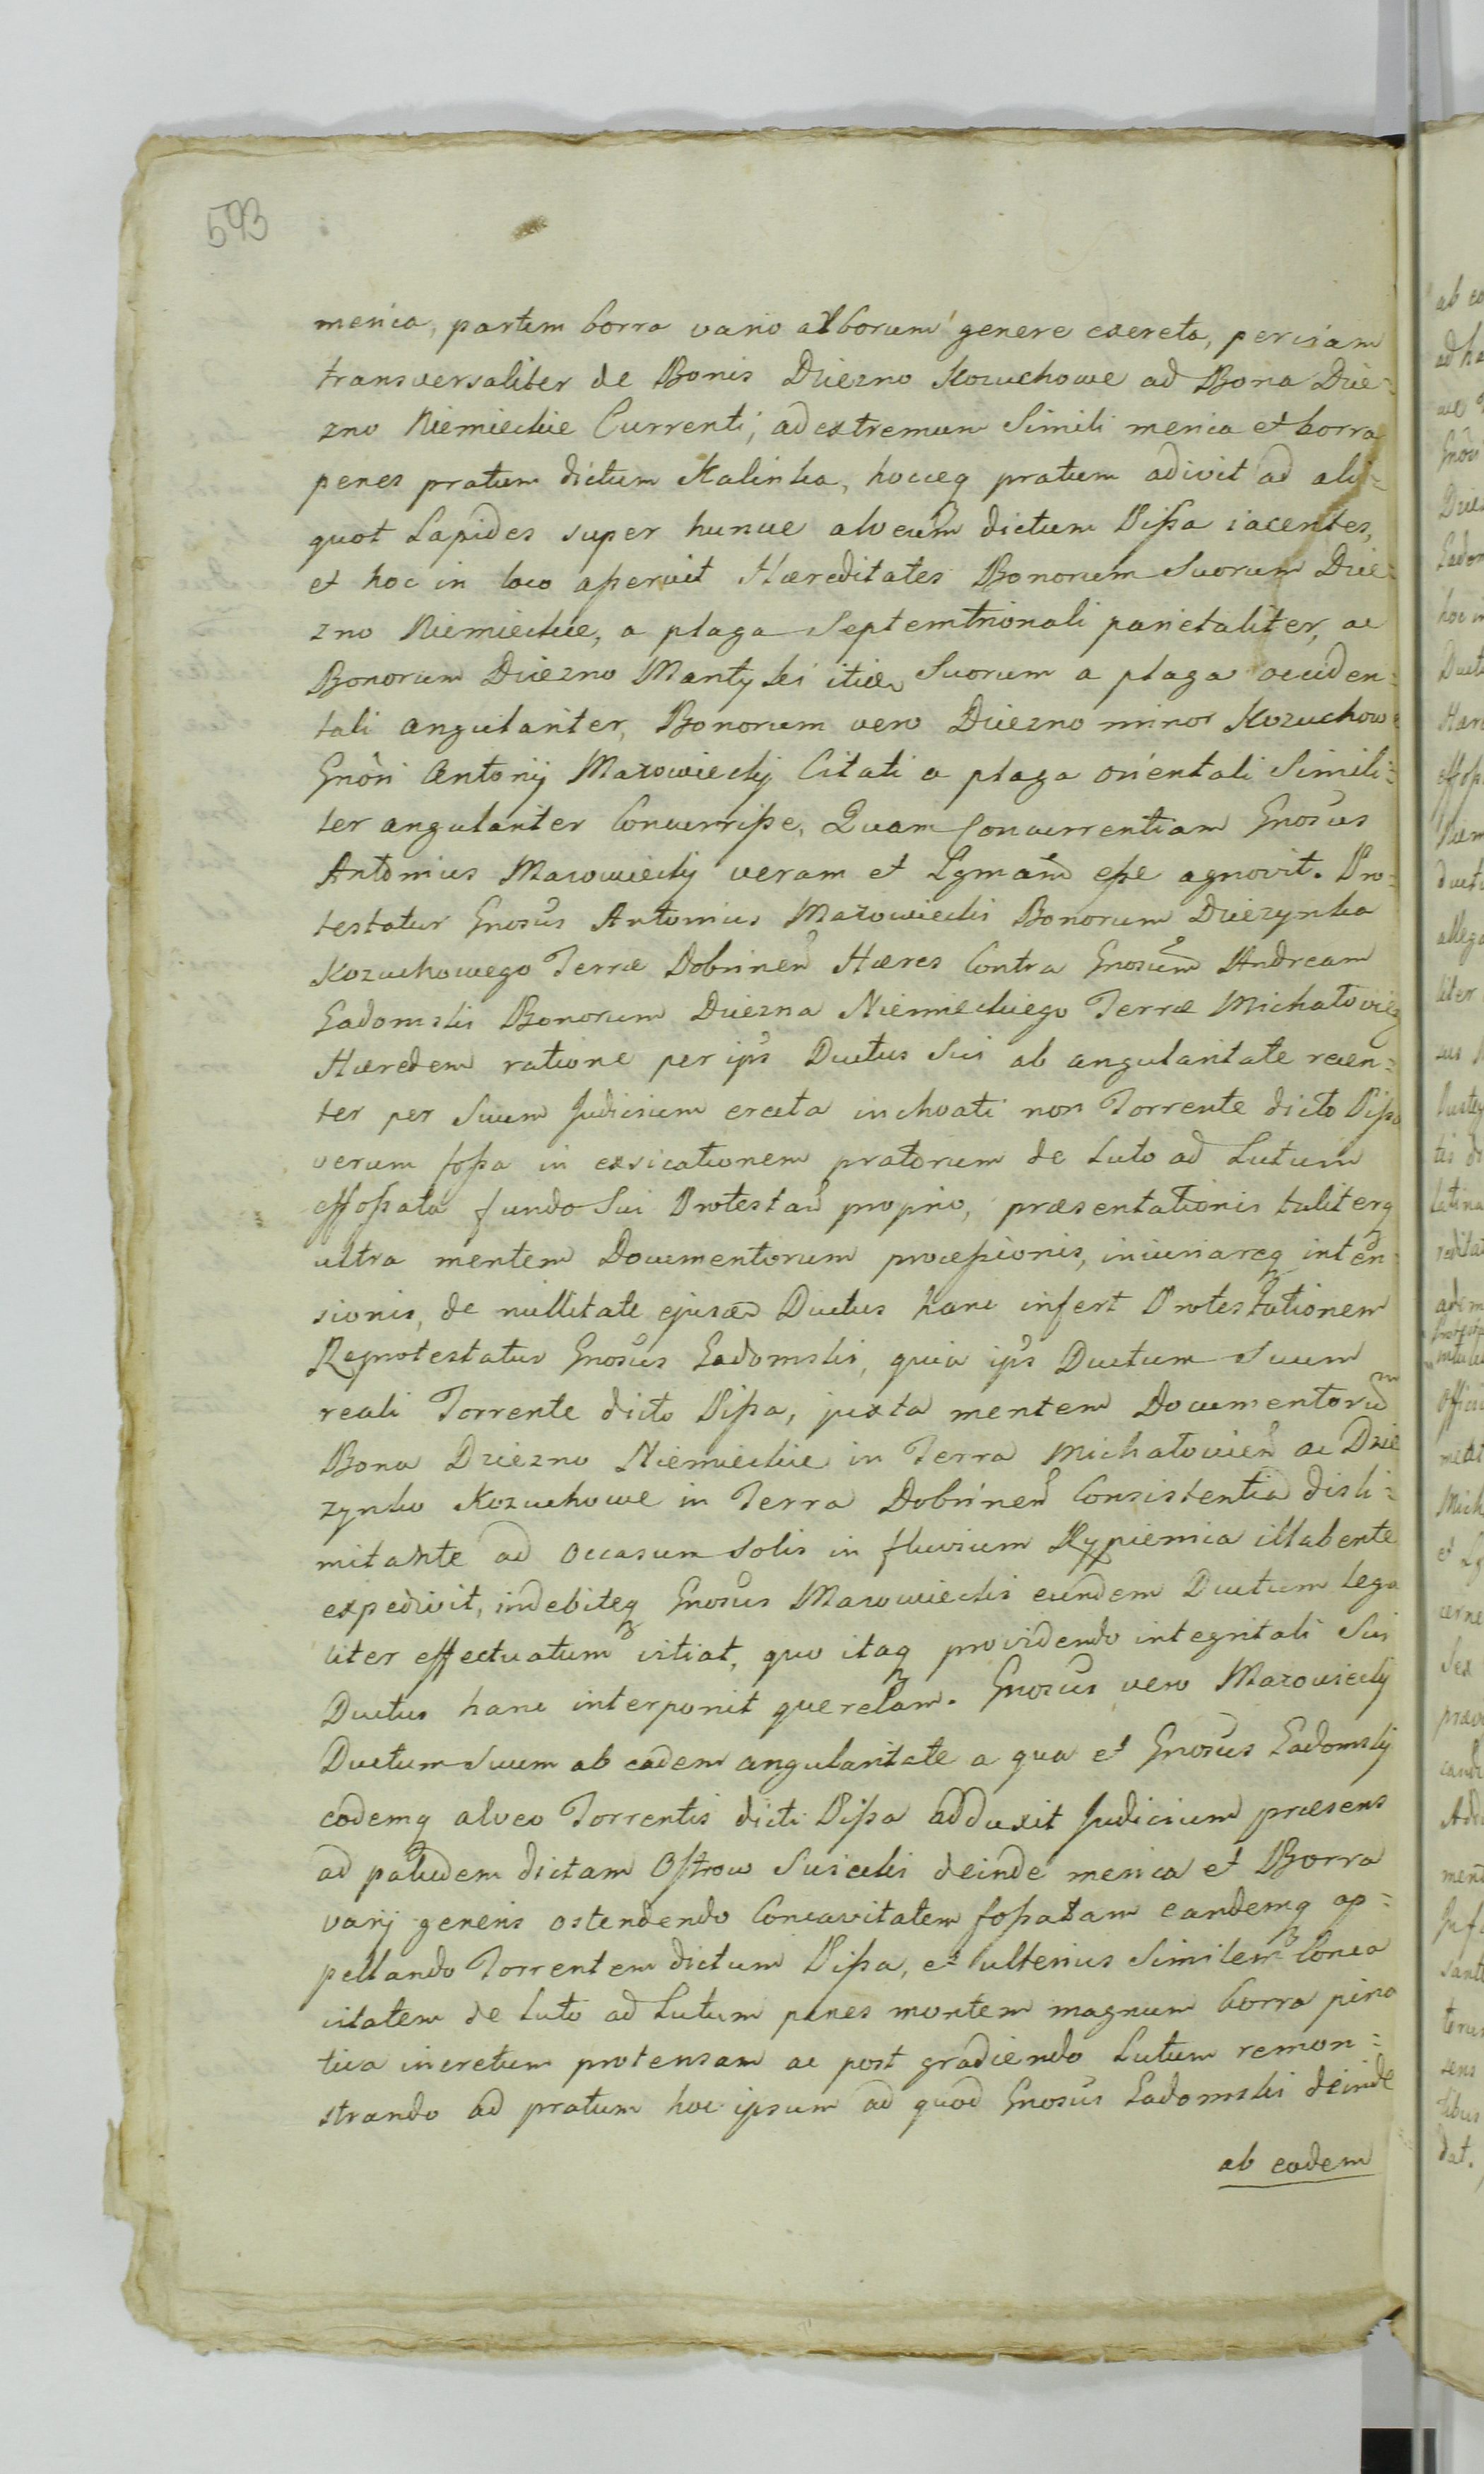 593
merica, partim borra vario arborum genere excreta, periciam
transversaliter de Bonis Dziezno Kozuchowe ad Bona Dzie-
zno Niemieckie Currenti, ad extremum Simili merica et borra
penes pratum dictum Kalinka, hocceq pratum adivit ad ali-
quot Lapides super huncce alveum dictum Pissa iacentes,
et hoc in loco asseruit Hæreditates Bonorum Suorum Dzie-
zno Niemieckie, a plaga Septemtrionali parietaliter, ac
Bonorum Dziezno Mantyki itid Suorum a plaga occiden-
tali angulariter, Bonorum vero Dziezno minor Kozuchowe
Gnosi Antonij Mazowiecky Citati a plaga orientali Simili-
ter angulariter Concurrisse, Quam Concurrentiam Gnosus
Antonius Mazowiecky veram et Lgmam esse agnovit. Pro-
testatur Gnosus Antonius Mazowiecki Bonorum Dziezynka
Kozuchowego Terræ Dobrinen Hæres Contra Gnosum Andream
Ładomski Bonorum Dziezna Niemieckiego Terræ Michałovien
Hæredem ratione per ips Ductus Sui ab angularitate recen-
ter per Suum Judicium erecta inchoati non Torrente dicto Pissa
verum fossa in exsicationem pratorum de Luto ad Lutum
effossata fundo Sui Protestan proprio, præsentationis taliterq
ultra mentem Documentorum processionis, iniuriæq inten-
sionis, de nullitate ejusd Ductus hanc infert Protestationem
Reprotestatur Gnosus Ładomski, quia ips Ductum Suum
reali Torrente dicto Pissa, juxta mentem Documentorum
Bona Dziezno Niemieckie in Terra Michałovien ac Dzie
zynko Kozuchowe in Terra Dobrinen Consistentia disli-
mitante ad Occasum Solis in fluvium Rypienica illabente
expedivit, indebiteq Gnosus Mazowiecki eundem Ductum lega
liter effectuatum vitiat, quo itaq providendo integritati Sui
Ductus hanc interponit querelam. Gnosus vero Mazowiecky
Ductum Suum ab eadem angularitate a qua et Gnosus Ładomsky
eodemq alveo Torrentis dicti Pissa adduxit Judicium præsens
ad paludem dictam Ostrow Susicki deinde merica et Borra
varij generis ostendendo Concavitatem fossatam eandemq ap-
pellando Torrentem dictum Pissa, et ulterius Similem Conca
vitatem de Luto ad Lutum penes montem magnum borra pina
tica incretum protensam ac post gradiendo Lutum remon-
strando ad pratum hoc ipsum ad quod Gnosus Ładomski deinde
ab eodem